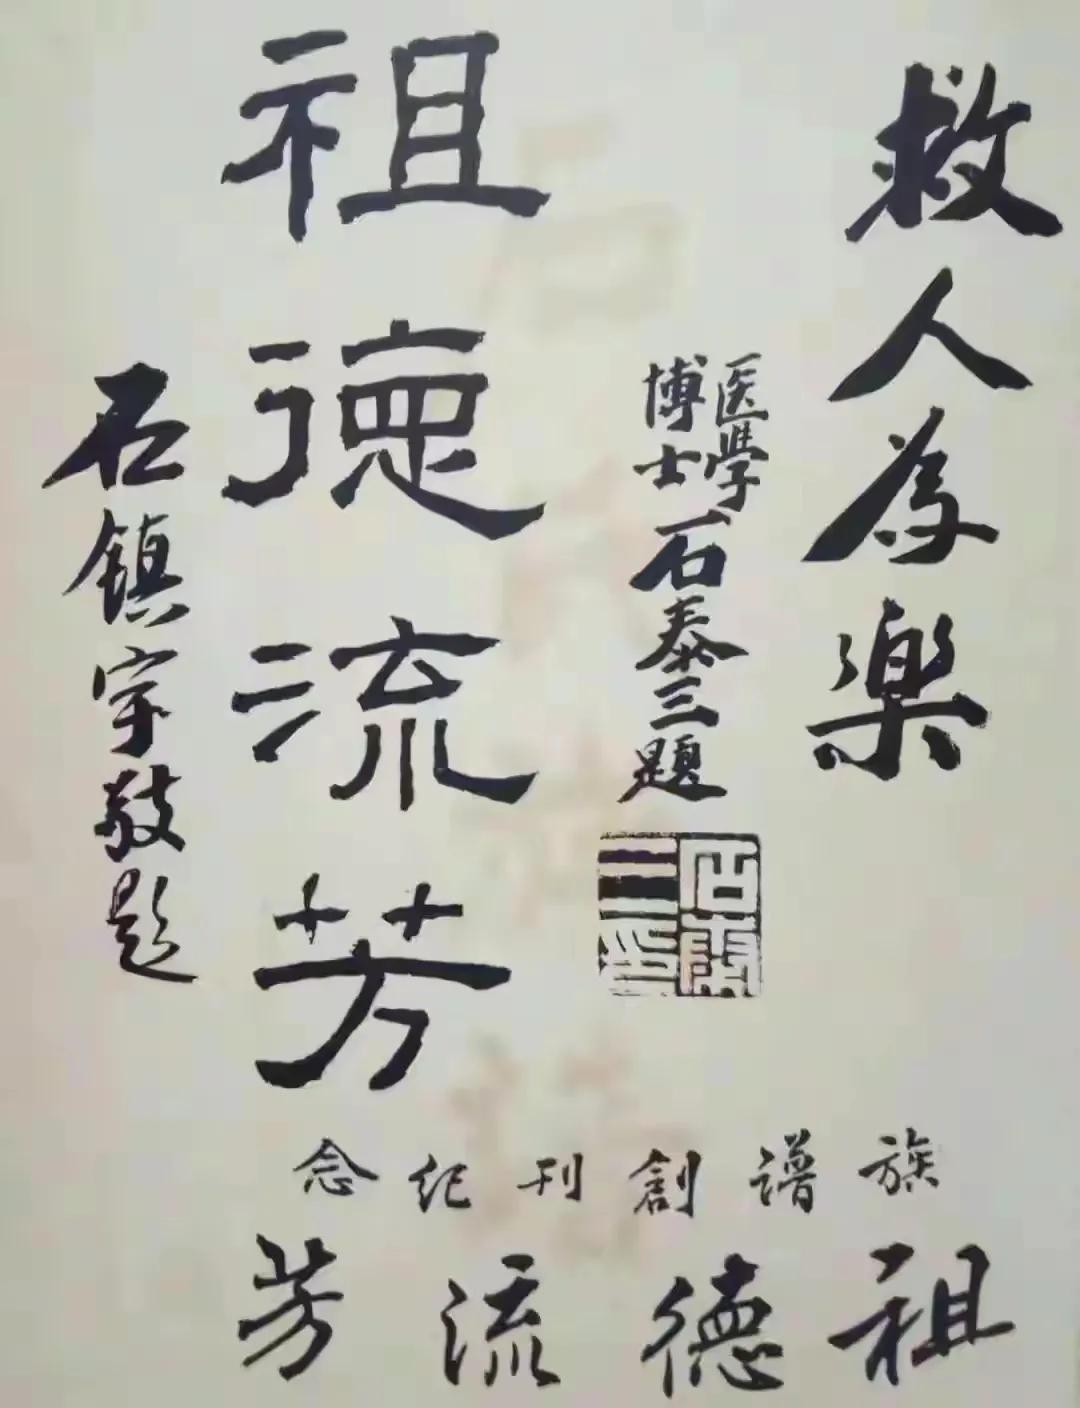 救人為樂
医學博士石泰三題
祖德流芳
石鎮宗敬題
族譜創刊紀念
祖德流芳